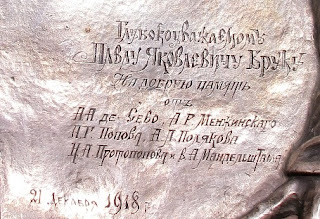 Глубокоуважаемомъ
Павлу Яковлевичу Бруку
На добрую память
отъ
А А де-Сево, А Р Менжинскаго
П. Г. Попова, А Л Полякова
Н А Протопопова и В. А Мандельштама
21 Декабря 1918 г.